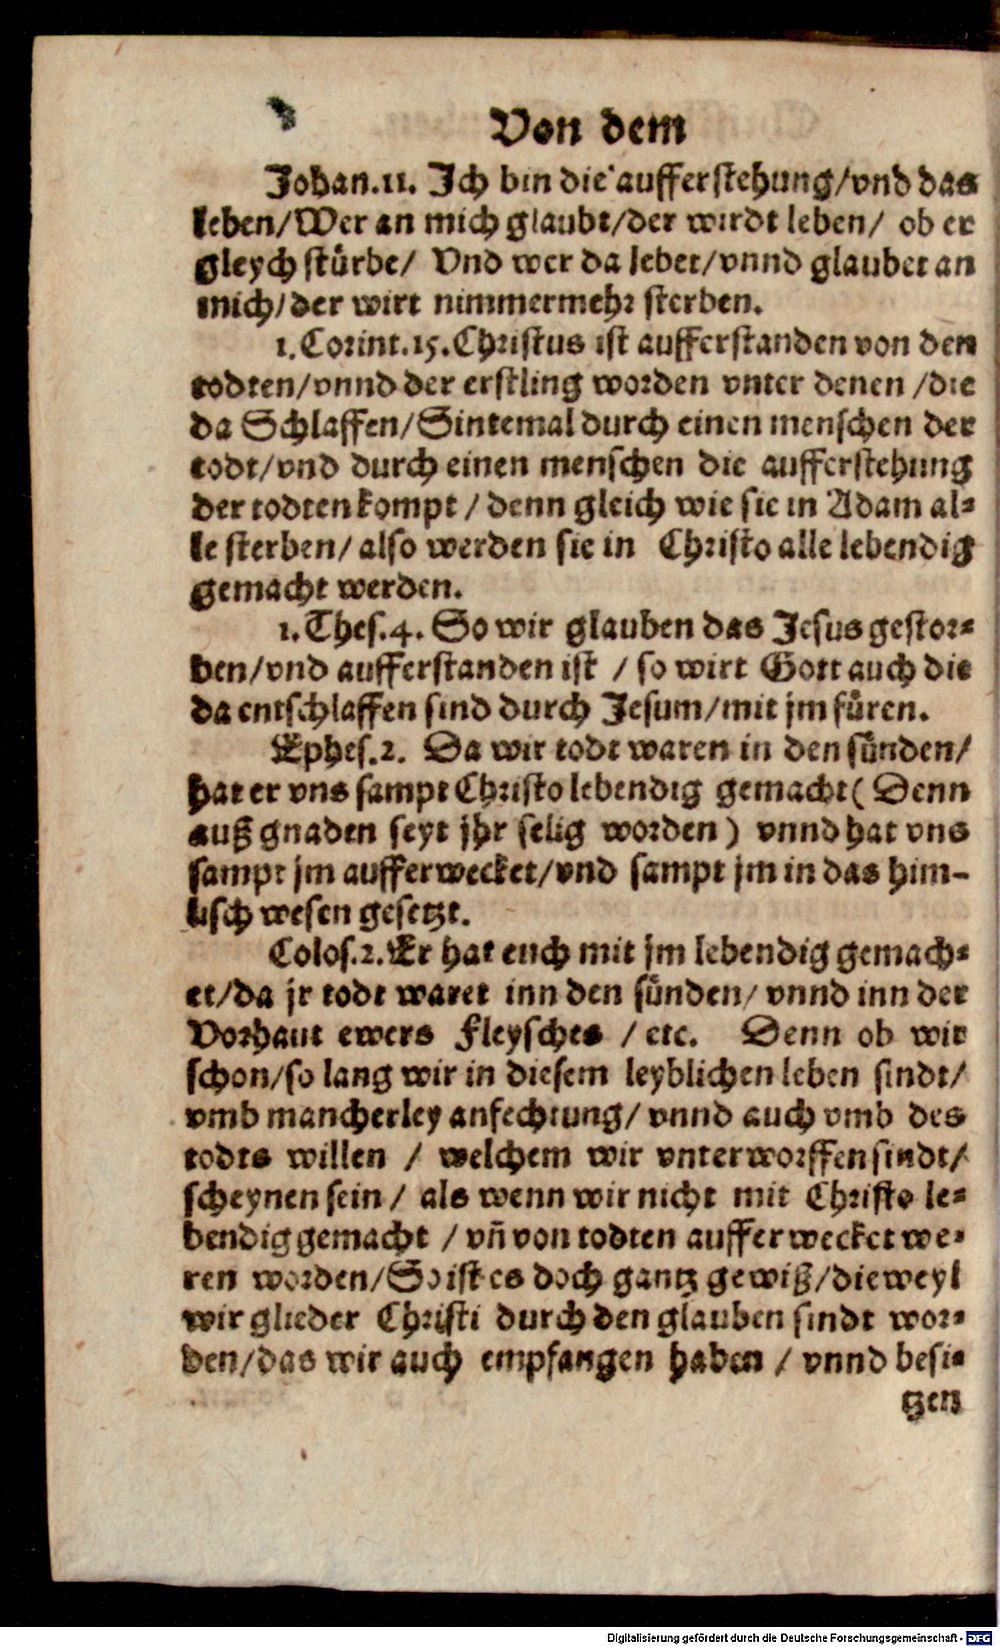 Von dem
Johan.11. Ich bin die aufferstehung/vnd das
leben/Wer an mich glaubt/der wirdt leben/ ob er
gleych stürbe/ Vnd wer da lebet/vnnd glaubet an
mich/der wirt nimmermehr sterben.
1.Corint.15.Christus ist aufferstanden von den
todten/vnnd der erstling worden vnter denen /die
da Schlaffen/Sintemal durch einen menschen der
todt/vnd durch einen menschen die aufferstehung
der todten kompt / denn gleich wie sie in Adam al⸗
le sterben/ also werden sie in Christo alle lebendig
gemacht werden.
1.Thes.4. So wir glauben das Jesus gestor⸗
ben/vnd aufferstanden ist / so wirt Gott auch die
da entschlaffen sind durch Jesum/mit jm füren.
Ephes.2. Da wir todt waren in den sünden/
hat er vns sampt Christo lebendig gemacht( Denn
auß gnaden seyt jhr selig worden) vnnd hat vns
sampt jm aufferwecket/vnd sampt jm in das him-
lisch wesen gesetzt.
Colos.2.Er hat euch mit jm lebendig gemach⸗
et/da jr todt waret inn den sünden/ vnnd inn der
Vorhaut ewers fleysches / etc. Denn ob wir
schon/so lang wir in diesem leyblichen leben sindt/
vmb mancherley anfechtung/ vnnd auch vmb des
todts willen / welchem wir vnterworffen sindt/
scheynen sein / als wenn wir nicht mit Christo le⸗
bendig gemacht / vñ von todten aufferwecket we⸗
ren worden/So ist es doch gantz gewiß/dieweyl
wir glieder Christi durch den glauben sindt wor⸗
den/das wir auch empfangen haben / vnnd besi⸗
tzen
Digitalisierung gefördert durch die Deutsche Forschungsgemeinschaft - DFG